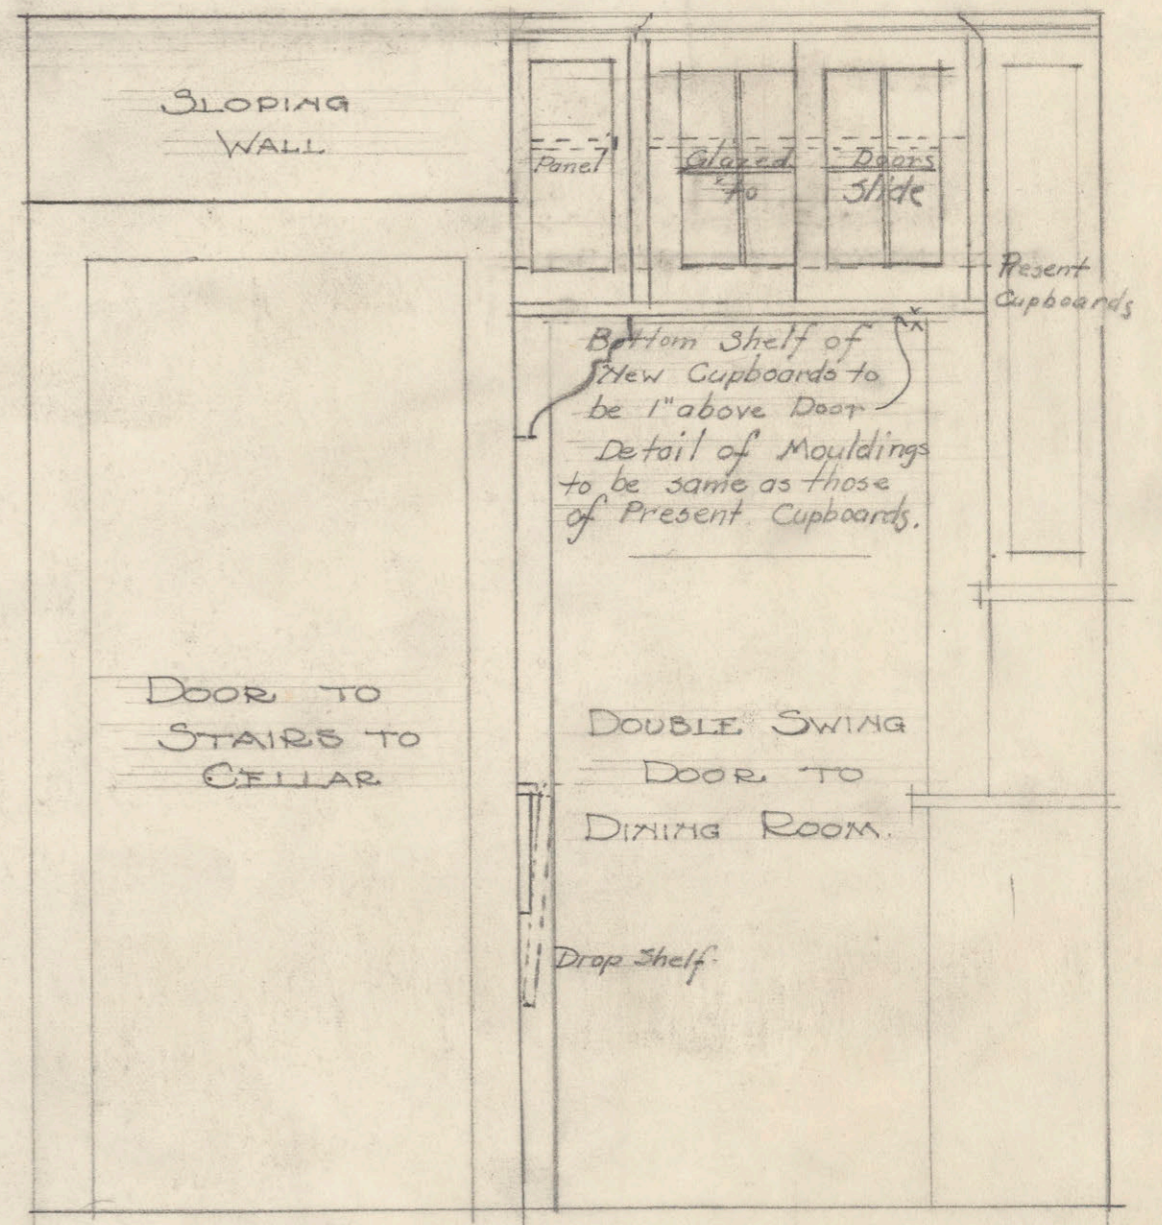 SLOPING
WALL
Panel
Glazed Doors
to Slide
Present
Cupboards
Bottom Shelf of
New Cupboards to
be 1" above Door
Detail of Mouldings
to be same as those
of Present Cupboards.
DOOR TO
STAIRS TO
CELLAR
DOUBLE SWING
DOOR TO
DINING ROOM.
Drop Shelf.